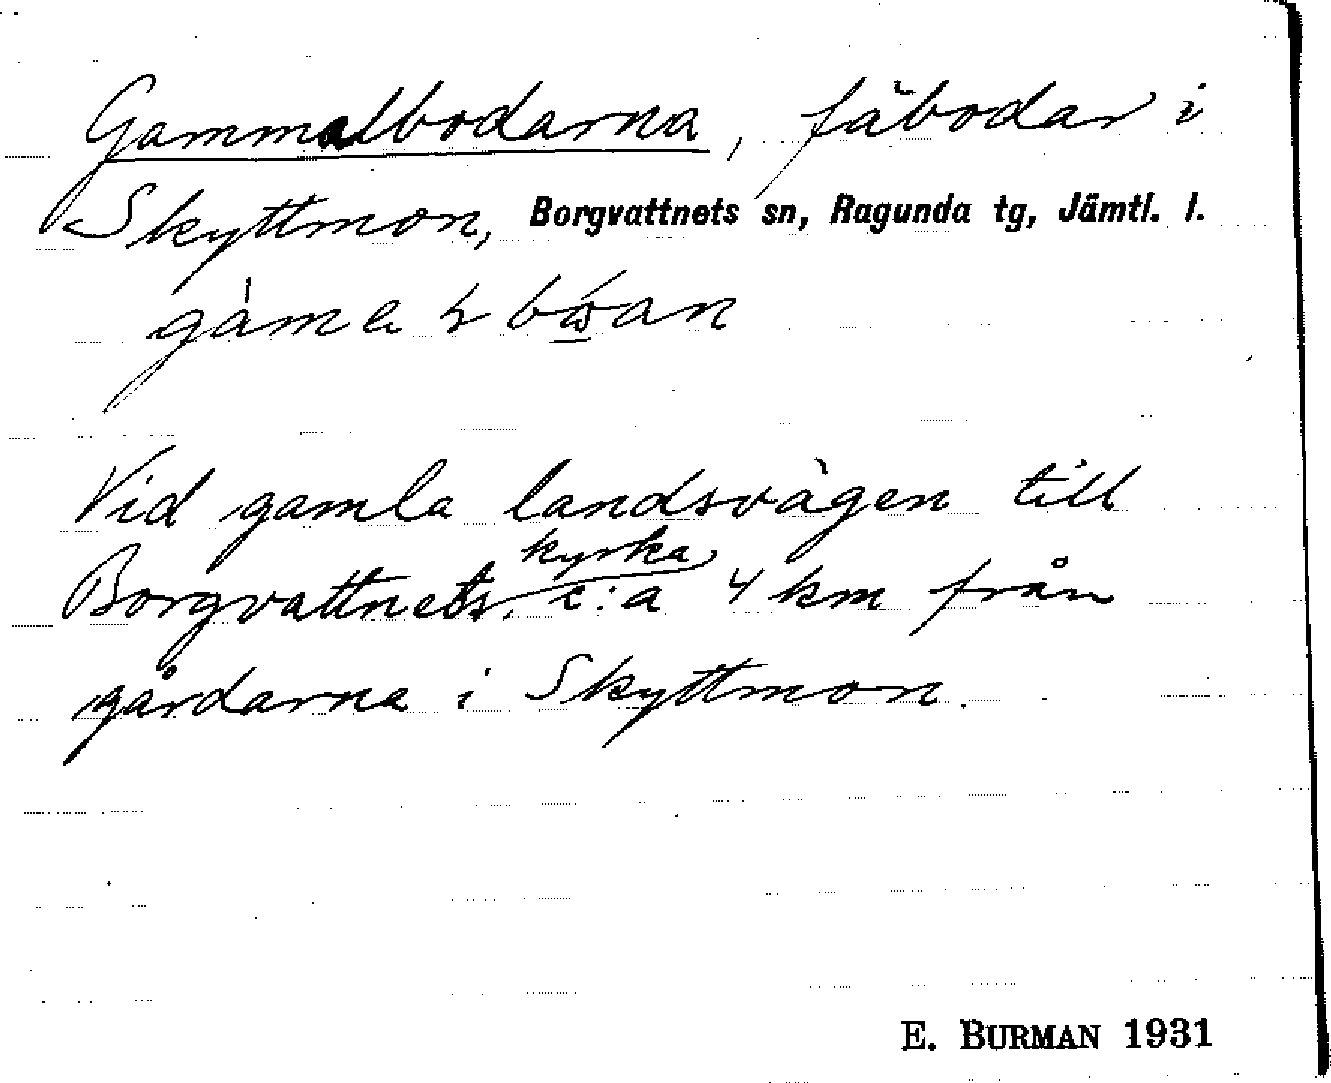 Gammalbodarna, fäbodar i
Skyttmon, Borgvattnets sn, Ragunda tg, Jämtl. l.
Vid gamla landsvägen till
Borgvattnets kyrka c:a 4 km från
gårdarna i Skyttmon.
E. BURMAN 1931